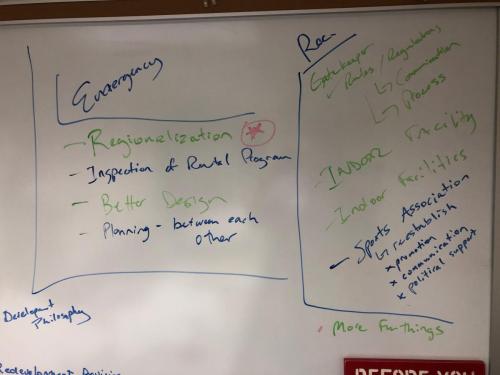 Emergency
- Regionalization
- Inspection of Rental Program
- Better Design
- Planning - between each
other
Development
Philosophy
Redevelopment
Rec.
Gatekeeper
Rules / Regulations
Communication
Process
- INDOOR FACILITY
- Indoor Facilities
- Sports Association
reestablish
x promotion
x communication
x political support
More Fun things
BEFORE YOU